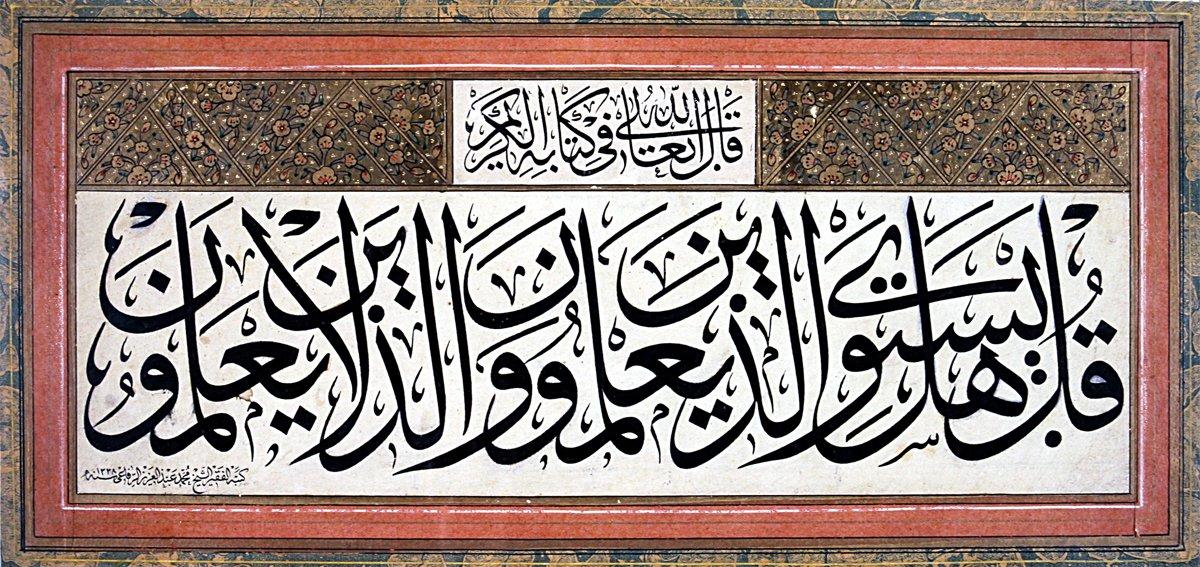 قال الله تعالى في كتابه الكريم
قُل هل يستوي الذين يعلمون والذين لا يعلمون
كتبه الفقير الشيخ محمد عبد العزيز الرفاعي سنه ١٣٣٥